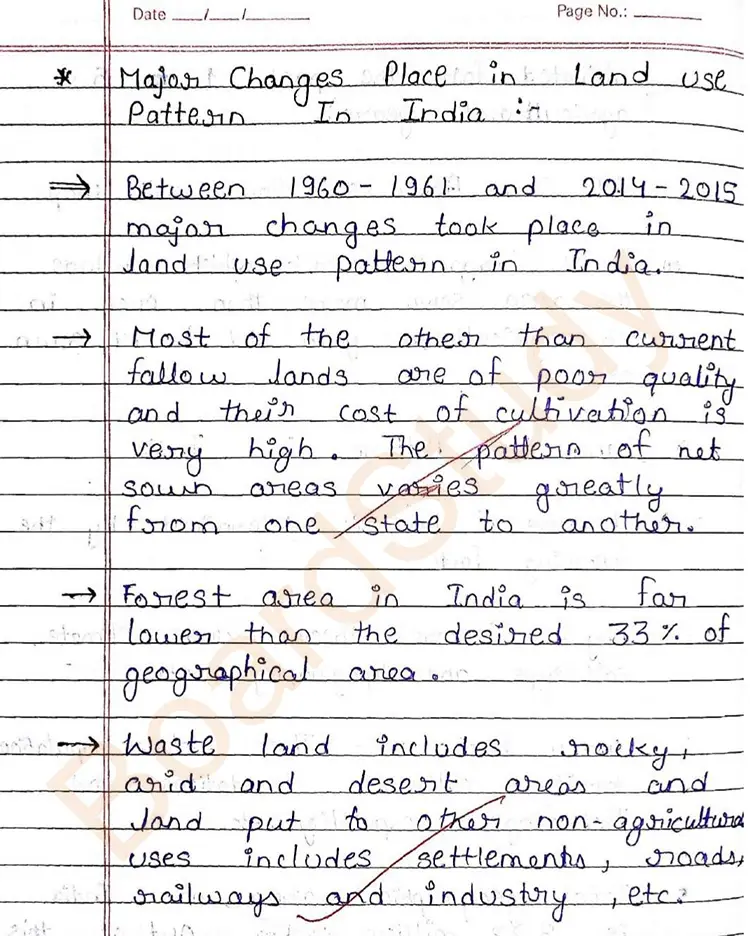 Date ___/___/______ Page No.: ______
* Major Changes Place in Land use
Pattern In India :-
⇒ Between 1960-1961 and 2014-2015
major changes took place in
land use pattern in India.
→ Most of the other than current
fallow lands are of poor quality
and their cost of cultivation is
very high. The pattern of net
sown areas varies greatly
from one state to another.
→ Forest area in India is far
lower than the desired 33% of
geographical area.
→ Waste land includes rocky,
arid and desert areas and
land put to other non-agricultural
uses includes settlements, roads,
railways and industry, etc.
BoardStudy